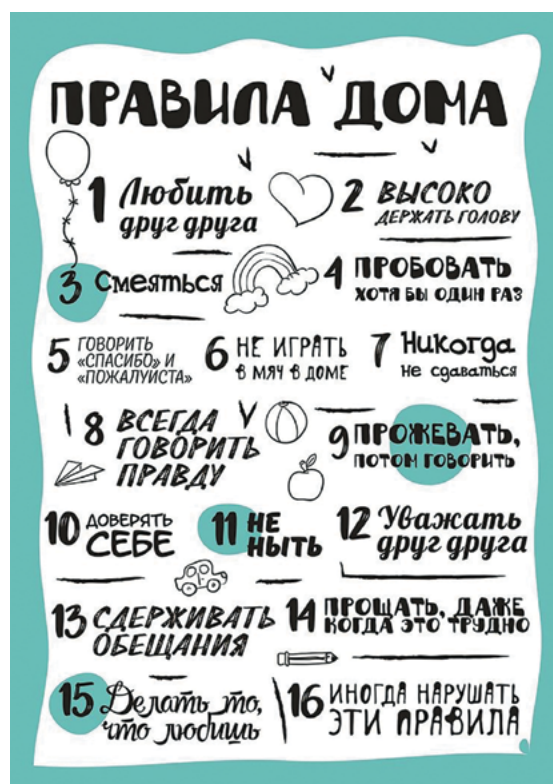 ПРАВИЛА ДОМА
1 Любить
друг друга
2 ВЫСОКО
ДЕРЖАТЬ ГОЛОВУ
3 Смеяться
4 ПРОБОВАТЬ
ХОТЯ БЫ ОДИН РАЗ
5 ГОВОРИТЬ
«СПАСИБО» И
«ПОЖАЛУИСТА»
6 НЕ ИГРАТЬ
В МЯЧ В ДОМЕ
7 Никогда
Не сдаваться
8 ВСЕГДА
ГОВОРИТЬ
ПРАВДУ
9 ПРОЖЕВАТЬ,
ПОТОМ ГОВОРИТЬ
10 ДОВЕРЯТЬ
СЕБЕ
11 НЕ
НЫТЬ
12 Уважать
друг друга
13 СДЕРЖИВАТЬ
ОБЕЩАНИЯ
14 ПРОЩАТЬ, ДАЖЕ
КОГДА ЭТО ТРУДНО
15 Делать то,
что любишь
16 ИНОГДА НАРУШАТЬ
ЭТИ ПРАВИЛА